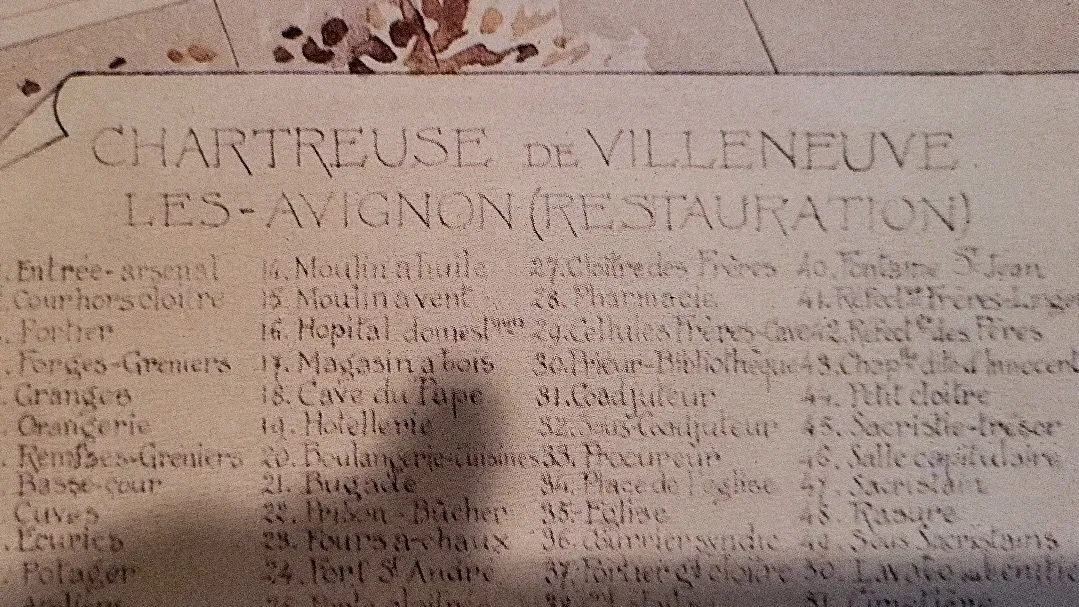 CHARTREUSE DE VILLENEUVE
LES-AVIGNON (RESTAURATION)
. Entrée-arsenal 14. Moulin a huile 27. Cloitre des Frères 40. Fontaine St Jean
. Cour hors cloitre 15. Moulin a vent 28. Pharmacie 41. Réfect Frères
. Portier 16. Hopital domest 29. Cellules Frères-Cave 42. Réfect des Fères
. Forges-Greniers 17. Magasin a bois 30. Prieur-Bibliothèque 43. Chap d'Innocent
. Granges 18. Cave du Pape 31. Coadjuteur 44. Petit cloitre
. Orangerie 19. Hotellerie 32. Sous-Coadjuteur 45. Sacristie-trésor
. Remises-Greniers 20. Boulangerie-cuisines 33. Procureur 46. Salle capitulaire
. Basse-cour 21. Bugade 34. Place de l'eglise 47. Sacristain
. Cuves 22. Prison-Bûcher 35. Eglise 48. Rasure
. Ecuries 23. Fours a-chaux 36. Courrier syndic 49. Sous Sacristains
. Potager 24. Fort St André 37. Portier gd cloitre 50. Lavabo
51. Cimetière